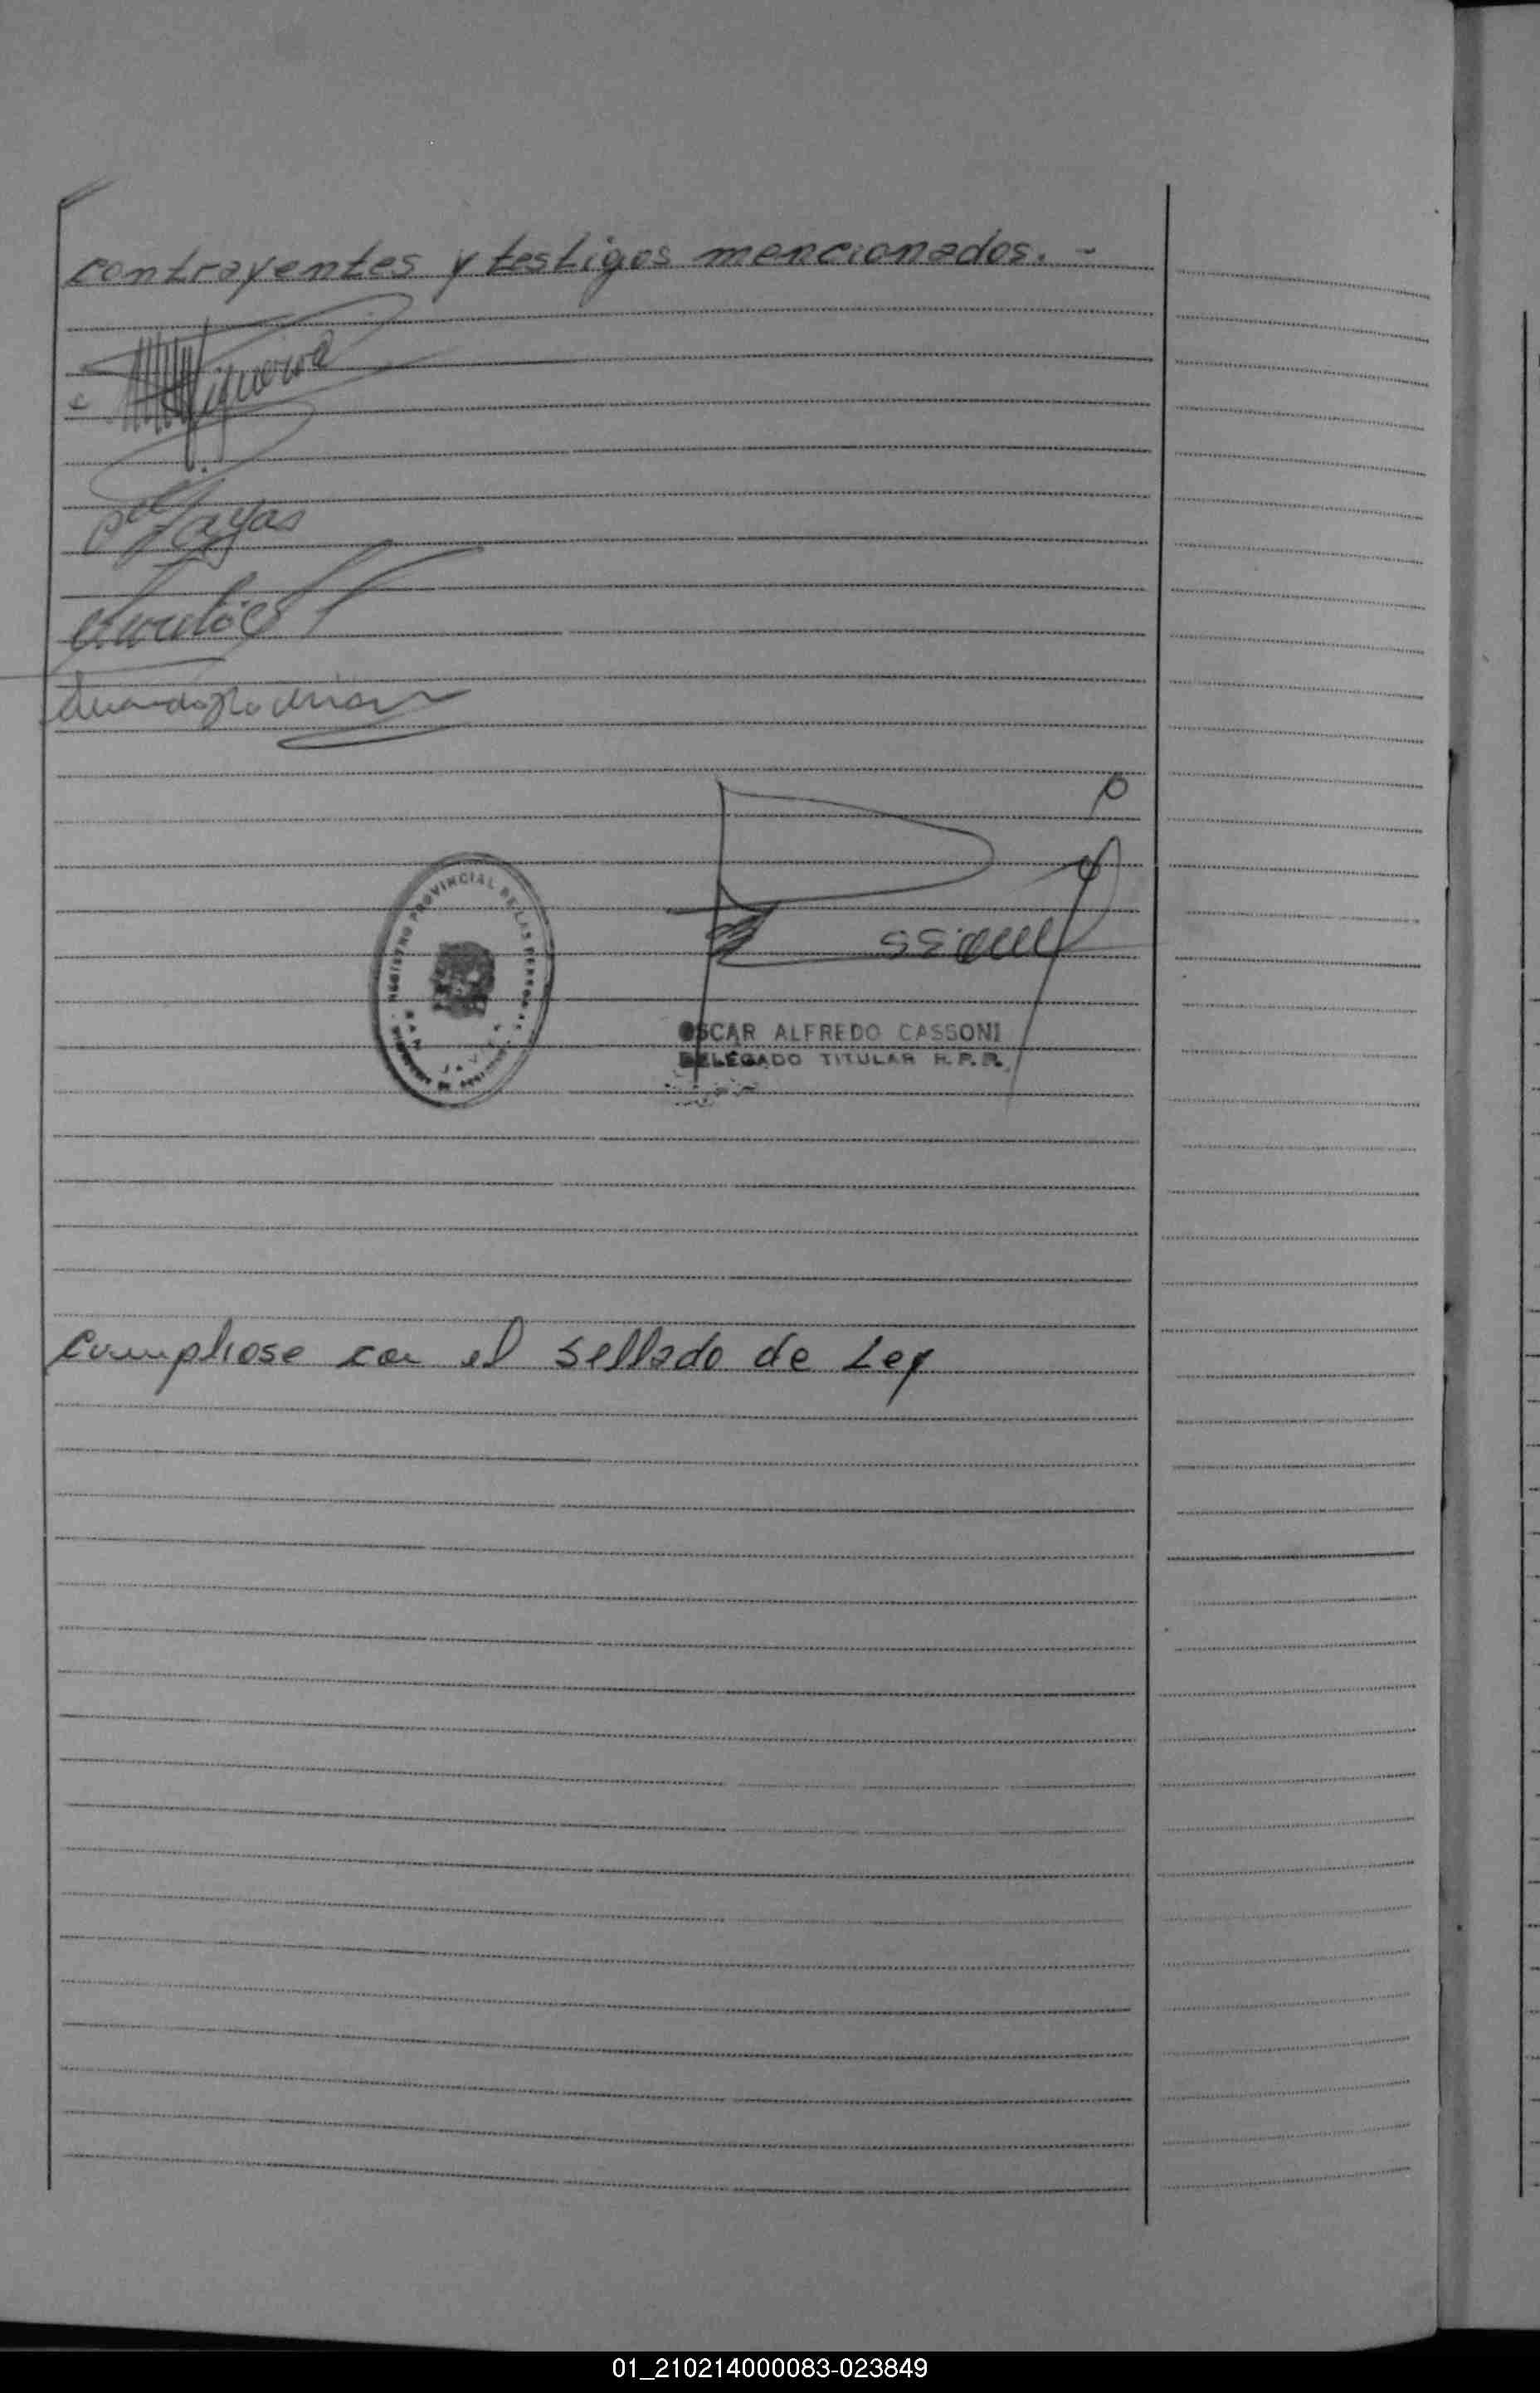 contrayentes y testigos mencionados. -
Figueroa
Zayas
REGISTRO PROVINCIAL DE LAS PERSONAS
OSCAR ALFREDO CASSONI
DELEGADO TITULAR R.P.P.
cumpliose con el sellado de Ley
01_210214000083-023849